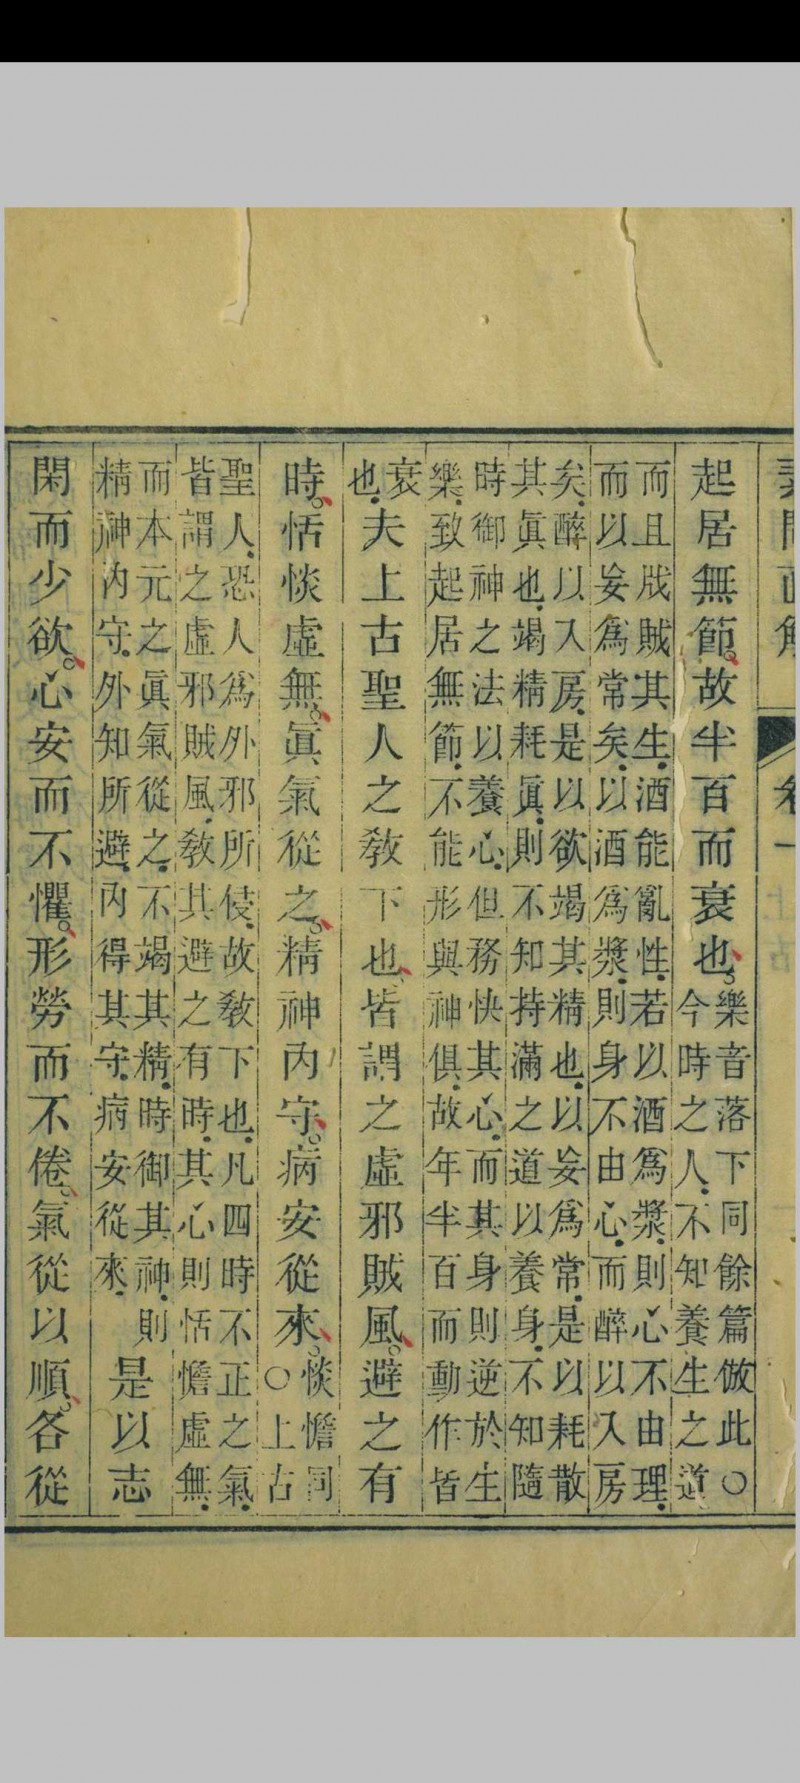 起居無節故半百而衰也樂音落下同餘篇倣此○
今時之人不知養生之道
而且戕賊其生酒能亂性若以酒爲漿則心不由理
而以妄爲常矣以酒爲漿則身不由心而醉以入房
矣醉以入房是以欲竭其精也以妄爲常是以耗散
其眞也竭精耗眞則不知持滿之道以養身不知隨
時御神之法以養心但務快其心而其身則逆於生
樂致起居無節不能形與神俱故年半百而動作皆
衰也夫上古聖人之教下也皆謂之虛邪賊風避之有
時恬惔虛無眞氣從之精神內守病安從來惔憺同
○上古
聖人恐人爲外邪所侵故教下也凡四時不正之氣
皆謂之虛邪賊風教其避之有時其心則恬憺虛無
而本元之眞氣從之不竭其精時御其神則
精神內守外知所避內得其守病安從來是以志
閑而少欲心安而不懼形勞而不倦氣從以順各從